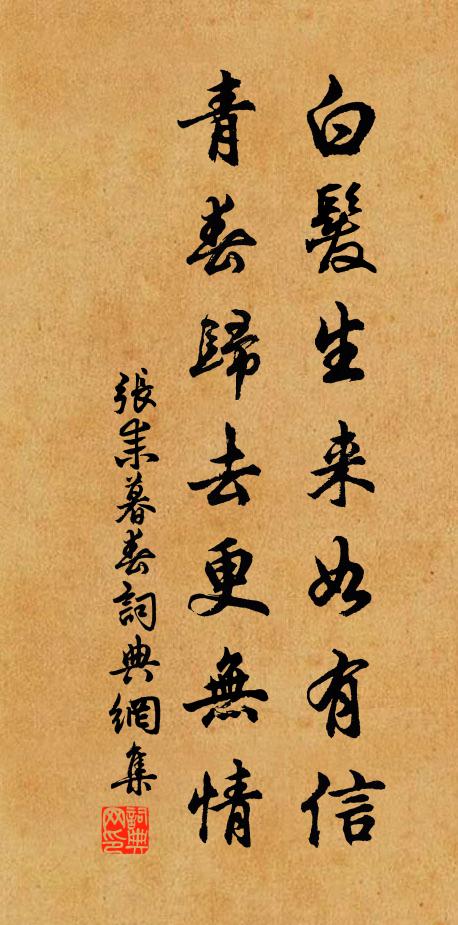 白髮生来如有信
青春歸去更無情
張耒暮春詞典網集
詞典网印